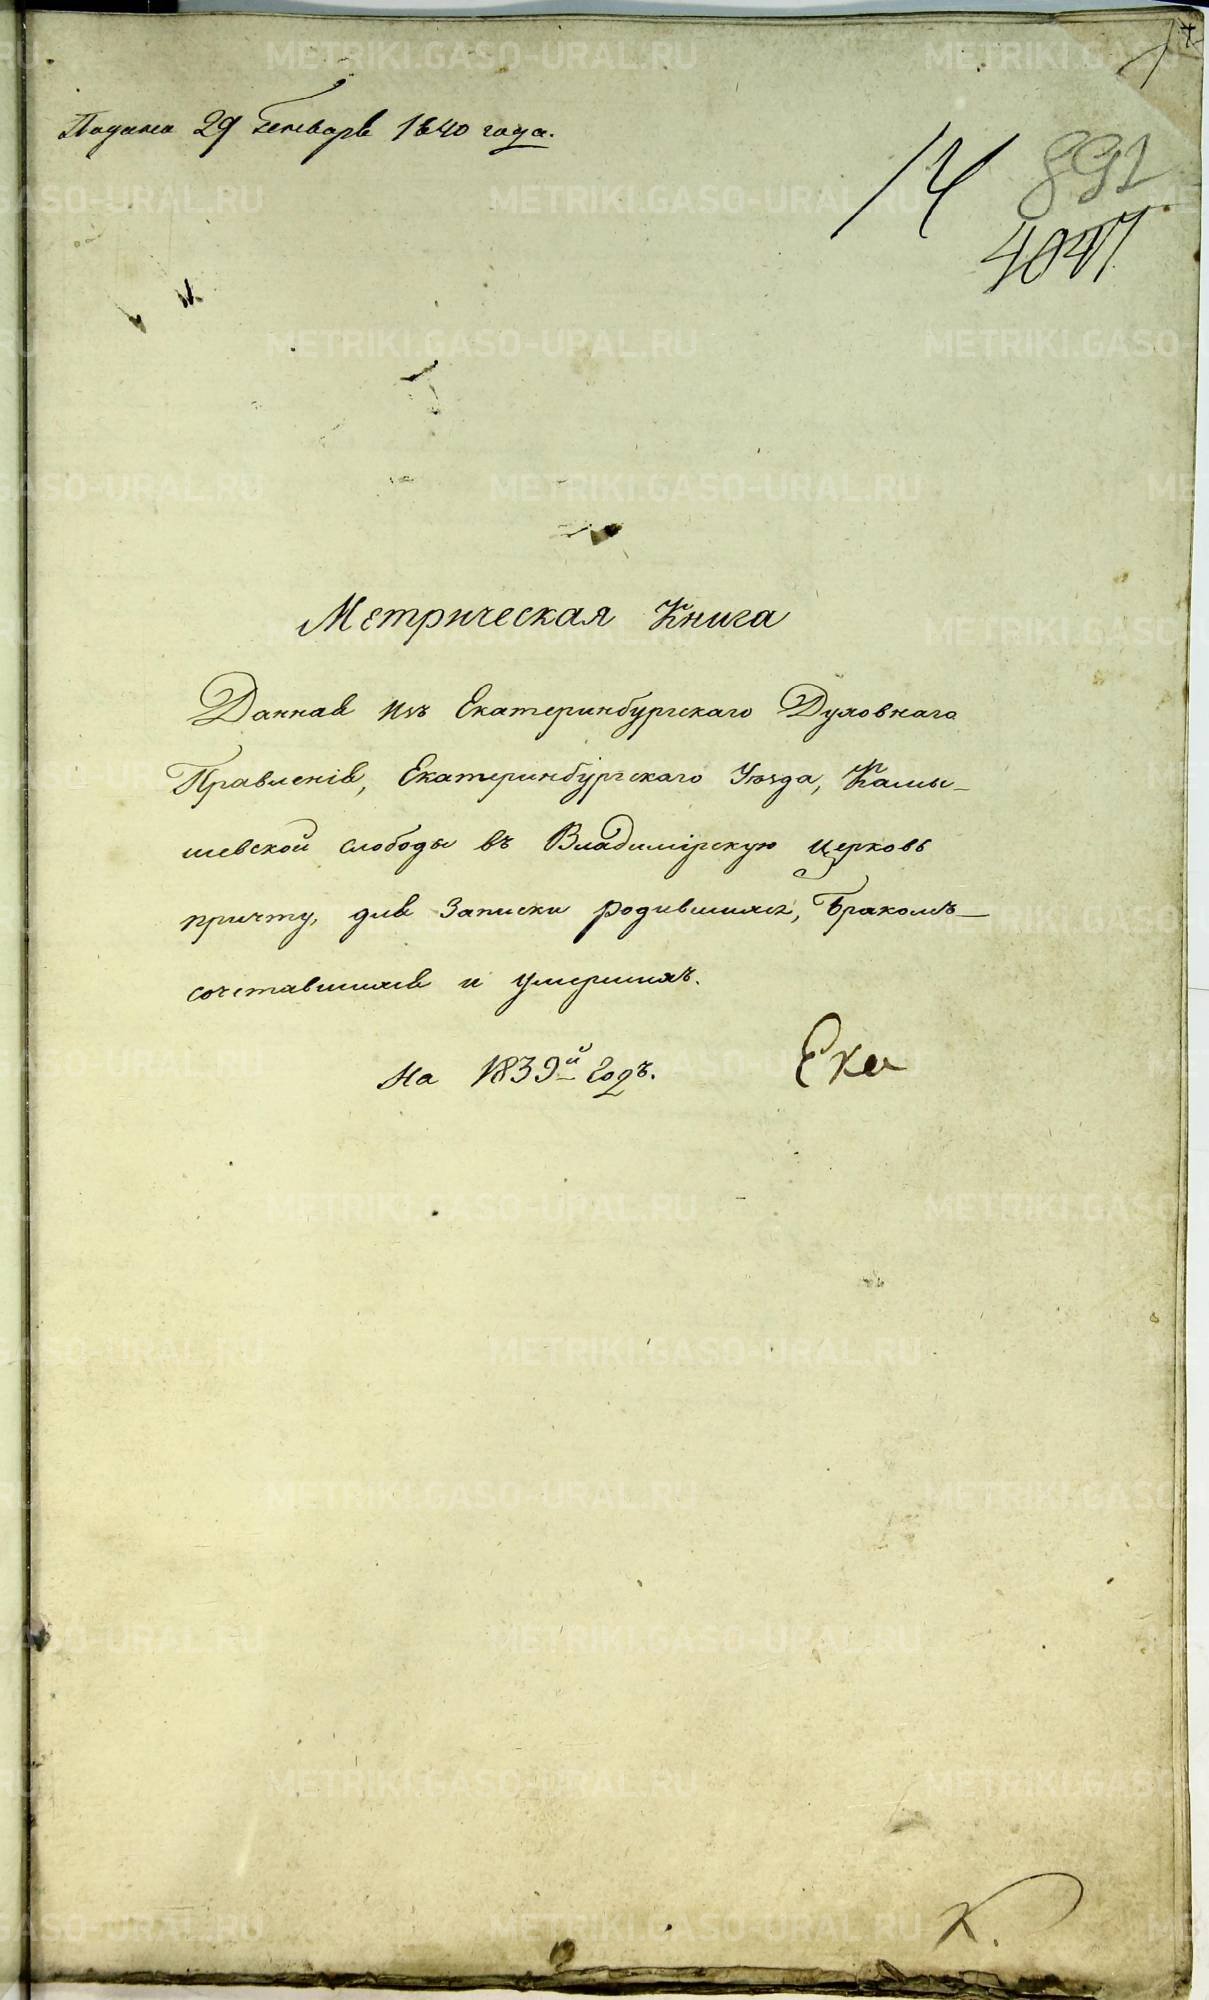 Подана 29 Генваря 1840 года.
14
892
4047
Метрическая Книга
Данная изъ Екатеринбургскаго Духовнаго
Правленія, Екатеринбургскаго Уѣзда, Камы-
шевской слободы въ Владимірскую церковь
причту, для записки родившихся, Бракомъ-
сочетавшихся и умершихъ.
На 1839й Годъ.
Ека
К.
METRIKI.GASO-URAL.RU